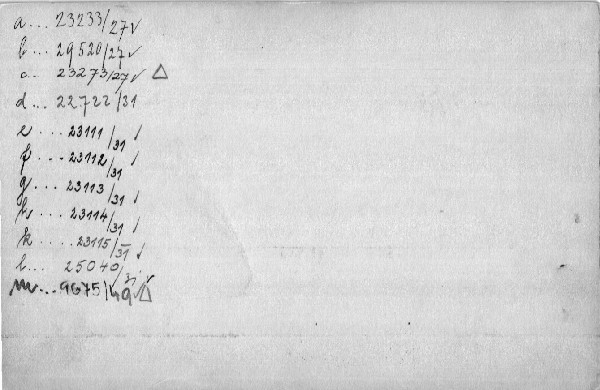 a ... 23233/27 ✓
b ... 29520/27 ✓
c .. 23273/27 ✓ △
d ... 22722/31
e ... 23111/31 ✓
f ... 23112/31 ✓
g ... 23113/31 ✓
h ... 23114/31 ✓
k .... 23115/31 ✓
l ... 25040/31 ✓
m ... 9675/49 ✓ △